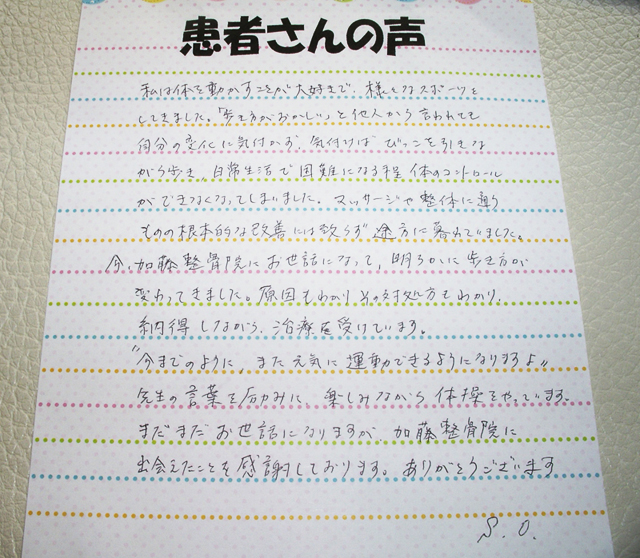 患者さんの声
私は体を動かすことが大好きで、様々なスポーツを
してきました。「歩き方がおかしい」と他人から言われても
自分の変化に気付かず、気付けば びっこを引きな
がら歩き、日常生活で困難になる程 体のコントロール
ができなくなってしまいました。マッサージや整体に通う
ものの根本的な改善には至らず 途方に暮れていました。
今、加藤整骨院にお世話になって、明らかに歩き方が
変わってきました。原因もわかり その対処方もわかり、
納得しながら、治療を受けています。
"今までのように、また元気に運動できるようになりますよ"
先生の言葉を励みに、楽しみながら 体操をやっています。
まだまだお世話になりますが、加藤整骨院に
出会えたことを感謝しております。ありがとうございます
S.O.